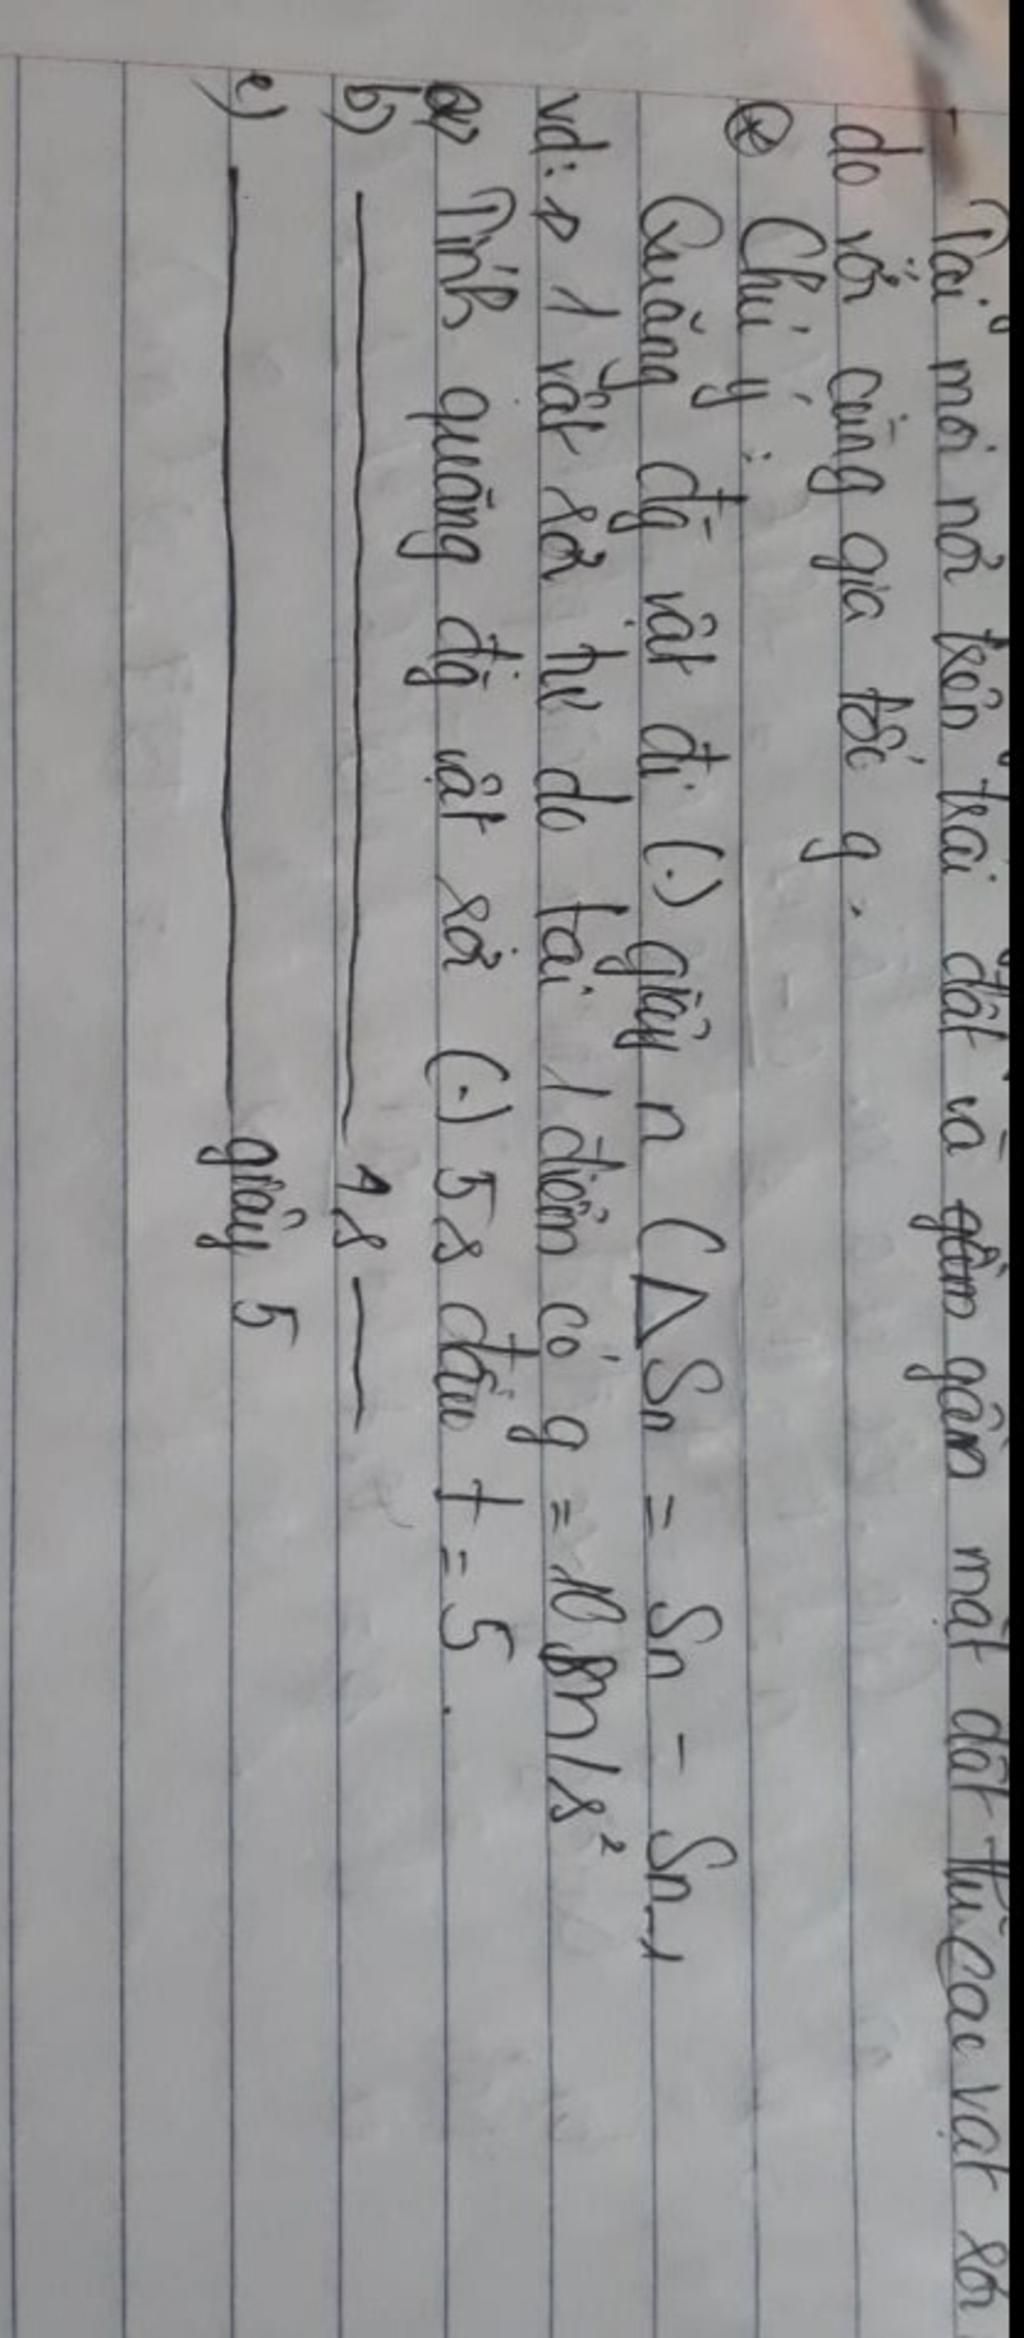 - Tại mỗi nơi trên trái đất và gần mặt đất thì các vật rơi
do với cùng gia tốc g.
* Chú ý:
Quãng đg vật đi (.) giây n (ΔSn = Sn - Sn-1
vd: 1 vật rơi tự do tại 1 điểm có g = 10 m/s²
a) Tính quãng đg vật rơi (.) 5s đầu t = 5.
b) ——— 4s —
c) ——— giây 5